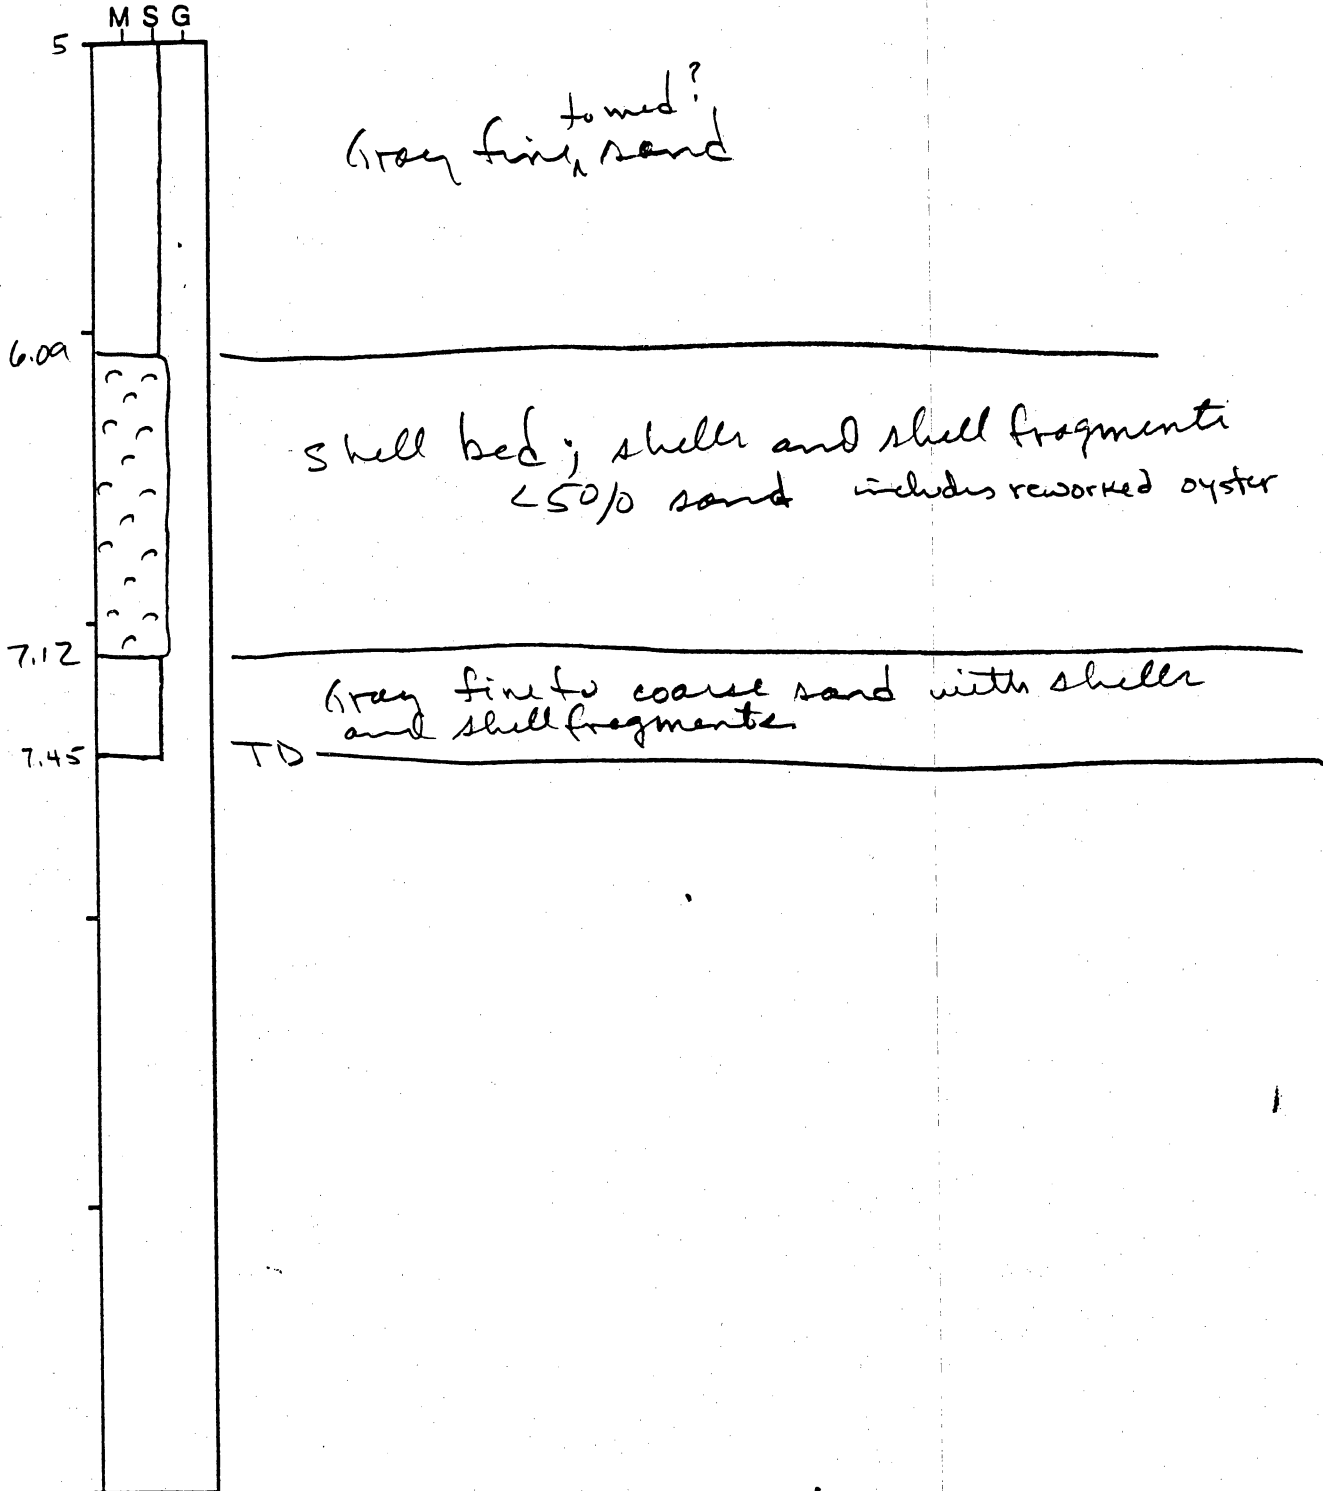 M S G
5
to med?
Gray fine ^ sand
6.09
shell bed; shells and shell fragments
<50% sand includes reworked oyster
7.12
Gray fine to coarse sand with shells
and shell fragments
7.45 TD